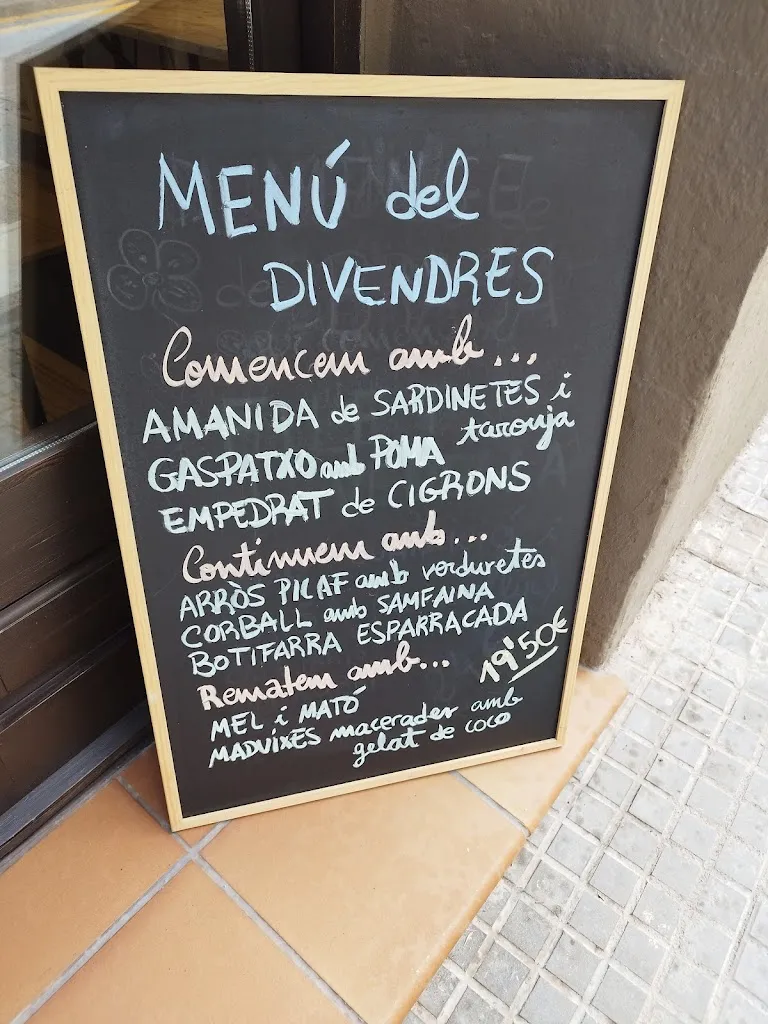 MENÚ del
DIVENDRES
Comencem amb...
AMANIDA de SARDINETES i
taronja
GASPATXO amb POMA
EMPEDRAT de CIGRONS
Continuem amb...
ARRÒS PILAF amb verduretes
CORBALL amb SAMFAINA
BOTIFARRA ESPARRACADA
19'50€
Rematem amb...
MEL i MATÓ
MADUIXES macerades amb
gelat de coco